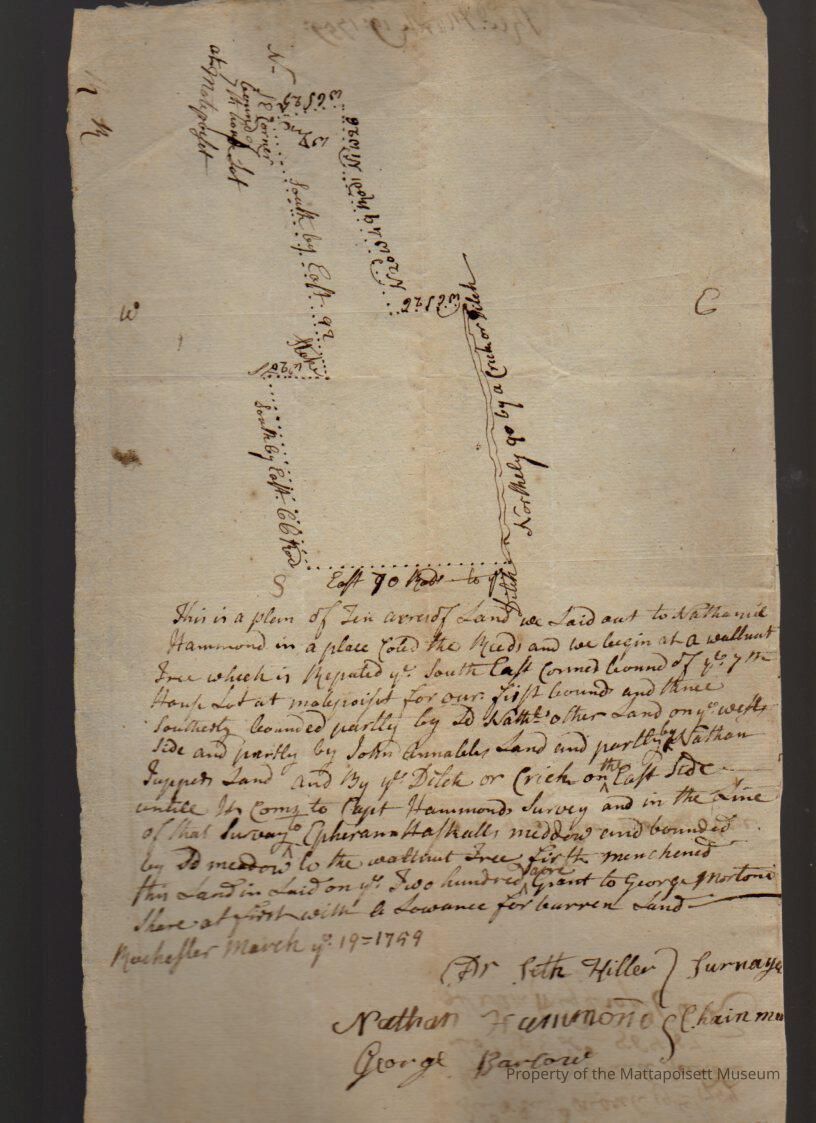 N
SE Corner
bound of
7th house Lot
at Matepoyst
W 6 S 25
South by East 92
Stake
W 20
South by East 66 Rod
W 6 S 26
W
E
S
Northely 90 by a Crick or Ditch
East 70 Rods to ye Ditch
This is a plem of Ten acres of Land we Laid out to Nathaniel
Hammond in a place Coled the Reeds and we begin at a wallnut
Tree which is Reputed ye South East Corner bound of ye 7th
House Lot at matepoiset for our first bound and thence
Southerly bounded partly by Sd Nathls other Land on ye west
Side and partly by John Annables Land and partly by Nathan
Tuppers Land and By ye Ditch or Crick on the East Side
untill It Coms to Capt Hammonds Survey and in the Line
of that Survay to Epheram Haskalls meddow and bounded
by Sd meadow to the wallnut Tree first menchened
this Land is Laid on ye Two hundred acre Grant to George Mortons
Share at first with a Lowance for burren Land
Rochester March ye 19=1759
Dr Seth Hiller } Survaye
Nathan Hammond } Chain men
George Barlow
Property of the Mattapoisett Museum